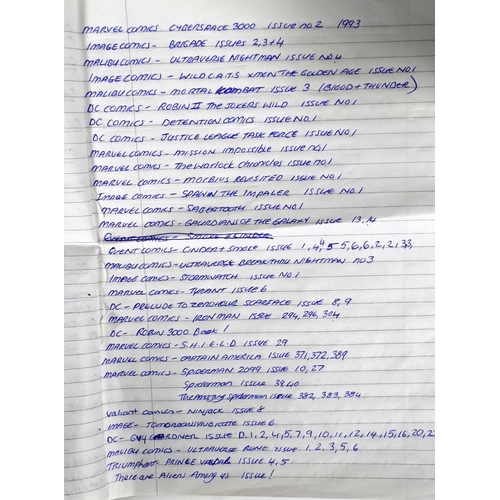 MARVEL COMICS CYBERSPACE 3000 ISSUE NO 2 1993
IMAGE COMICS - BRIGADE ISSUES 2, 3 + 4
MALIBU COMICS - ULTRAVERSE NIGHTMAN ISSUE NO. 4
IMAGE COMICS - WILDC.A.T.S XMEN THE GOLDEN AGE ISSUE NO. 1
MALIBU COMICS - MORTAL KOMBAT ISSUE 3 (BLOOD + THUNDER)
DC COMICS - ROBIN II THE JOKERS WILD ISSUE NO. 1
DC COMICS - DETENTION COMICS ISSUE NO. 1
DC COMICS - JUSTICE LEAGUE TASK FORCE ISSUE NO. 1
MARVEL COMICS - MISSION IMPOSSIBLE ISSUE NO 1
MARVEL COMICS - THE WARLOCK CHRONICLES ISSUE NO 1
MARVEL COMICS - MORBIUS REVISITED ISSUE NO. 1
IMAGE COMICS - SPAWN THE IMPALER ISSUE NO. 1
MARVEL COMICS - SABERTOOTH ISSUE NO. 1
MARVEL COMICS - GAURDIANS OF THE GALAXY ISSUE 13, 14
EVENT COMICS -
EVENT COMICS - CINDER + SMOKE ISSUE 1, 4, 4 5 5, 6, 6, 2, 2, 3 3,
MALIBU COMICS - ULTRAVERSE BREAK THRU NIGHTMAN NO 3
IMAGE COMICS - STORMWATCH ISSUE NO. 1
MARVEL COMICS - TYRANT ISSUE 6
DC - PRELUDE TO ZERO HOUR SCARFACE ISSUE 8, 9
MARVEL COMICS - IRON MAN ISSUE 294, 296, 304
DC - ROBIN 3000 BOOK 1
MARVEL COMICS - S.H.I.E.L.D ISSUE 29
MARVEL COMICS - CAPTAIN AMERICA ISSUE 371, 372, 389
MARVEL COMICS - SPIDERMAN 2099 ISSUE 10, 27
Spiderman Issue 38 40
The Amazing Spiderman issue 382, 383, 384
Valiant comics - NINJACK ISSUE 8
IMAGE - TOMORROW ISSUE 6
DC - GUY GARDNER ISSUE 0, 1, 2, 4, 5, 7, 9, 10, 11, 12, 14, 15, 16, 20, 2
MALIBU COMICS - ULTRAVERSE RUNE ISSUE 1, 2, 3, 5, 6
TRIUMPHANT PRINCE ISSUE 4, 5
There are Aliens Among us ISSUE 1